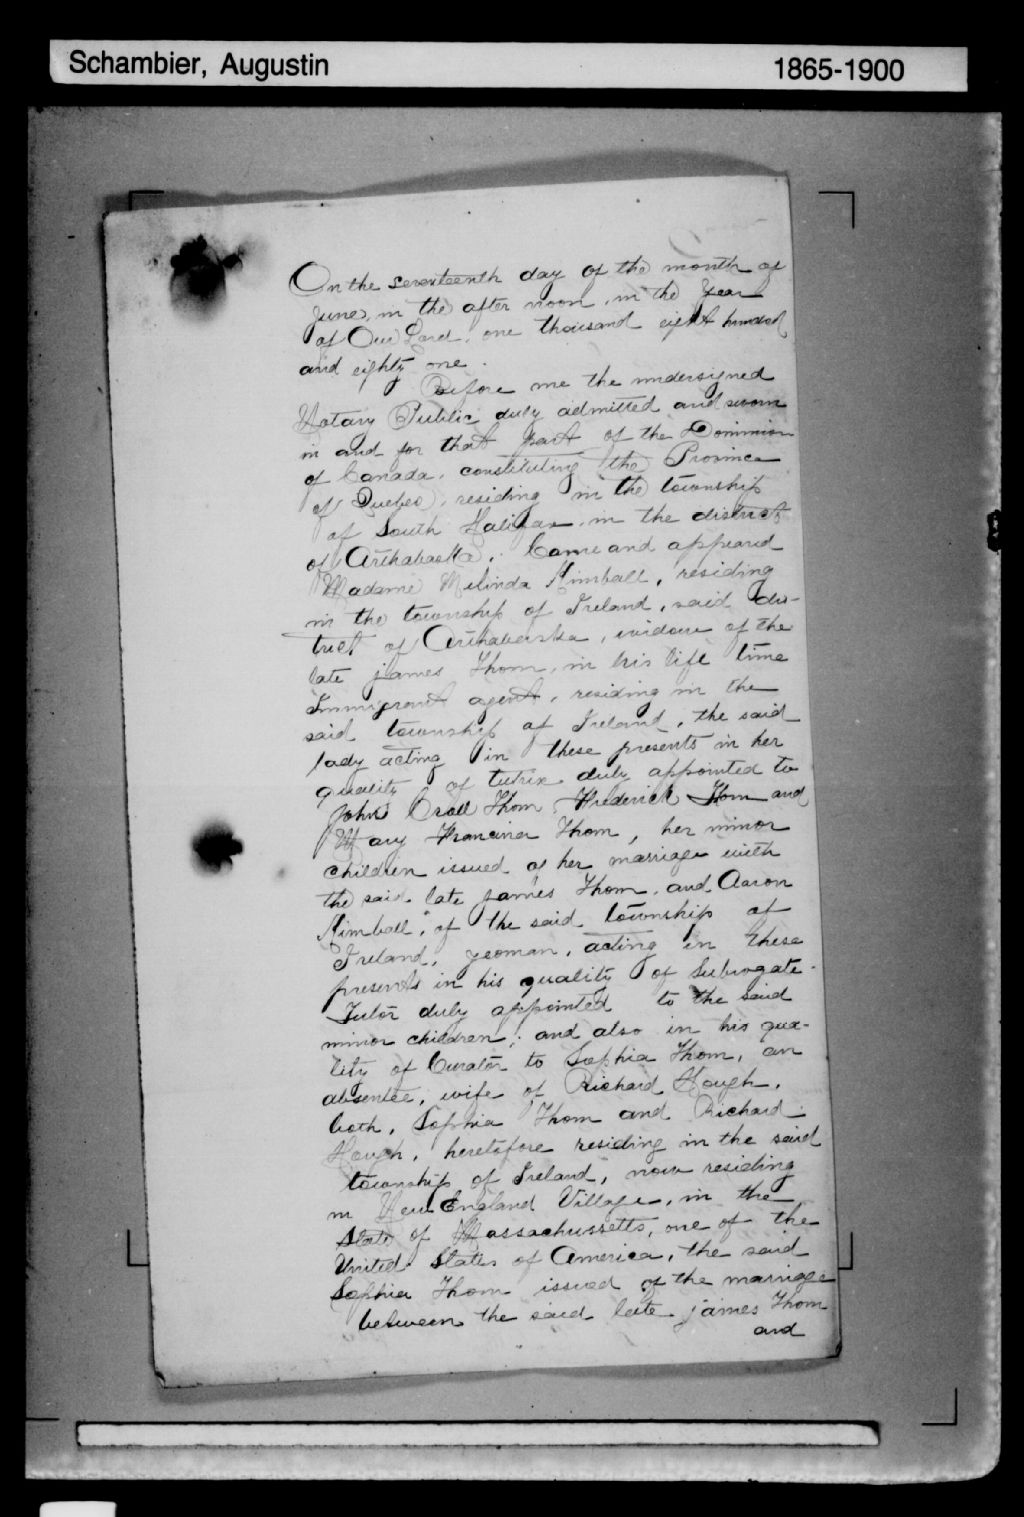 Schambier, Augustin
1865-1900
On the seventeenth day of the month of
june, in the after noon, in the year
of Our Lord, one thousand eight hundred
and eighty one.
Before me the undersigned
Notary Public duly admitted and sworn
in and for that part of the Dominion
of Canada, constituting the Province
of Quebec, residing in the township
of South Halifax, in the district
of Arthabaska, Came and appeared
Madame Melinda Kimball, residing
in the township of Ireland, said dis-
trict of Arthabaska, widow of the
late james Thom, in his life time
Immigrant agent, residing in the
said township of Ireland, the said
lady acting in these presents in her
quality of tutrix duly appointed to
John Croll Thom, Frederick Thom and
Mary Francina Thom, her minor
children issued of her marriage with
the said late james Thom, and Aaron
Kimball, of the said township of
Ireland, yeoman, acting in these
presents in his quality of Subrogate-
Tutor duly appointed to the said
minor children; and also in his qua-
lity of Curator to Sophia Thom, an
absentee, wife of Richard Hough,
both, Sophia Thom and Richard
Hough, heretofore residing in the said
township of Ireland, now residing
in New England Village, in the
State of Massachussetts, one of the
United States of America, the said
Sophia Thom issued of the marriage
between the said late james Thom
and